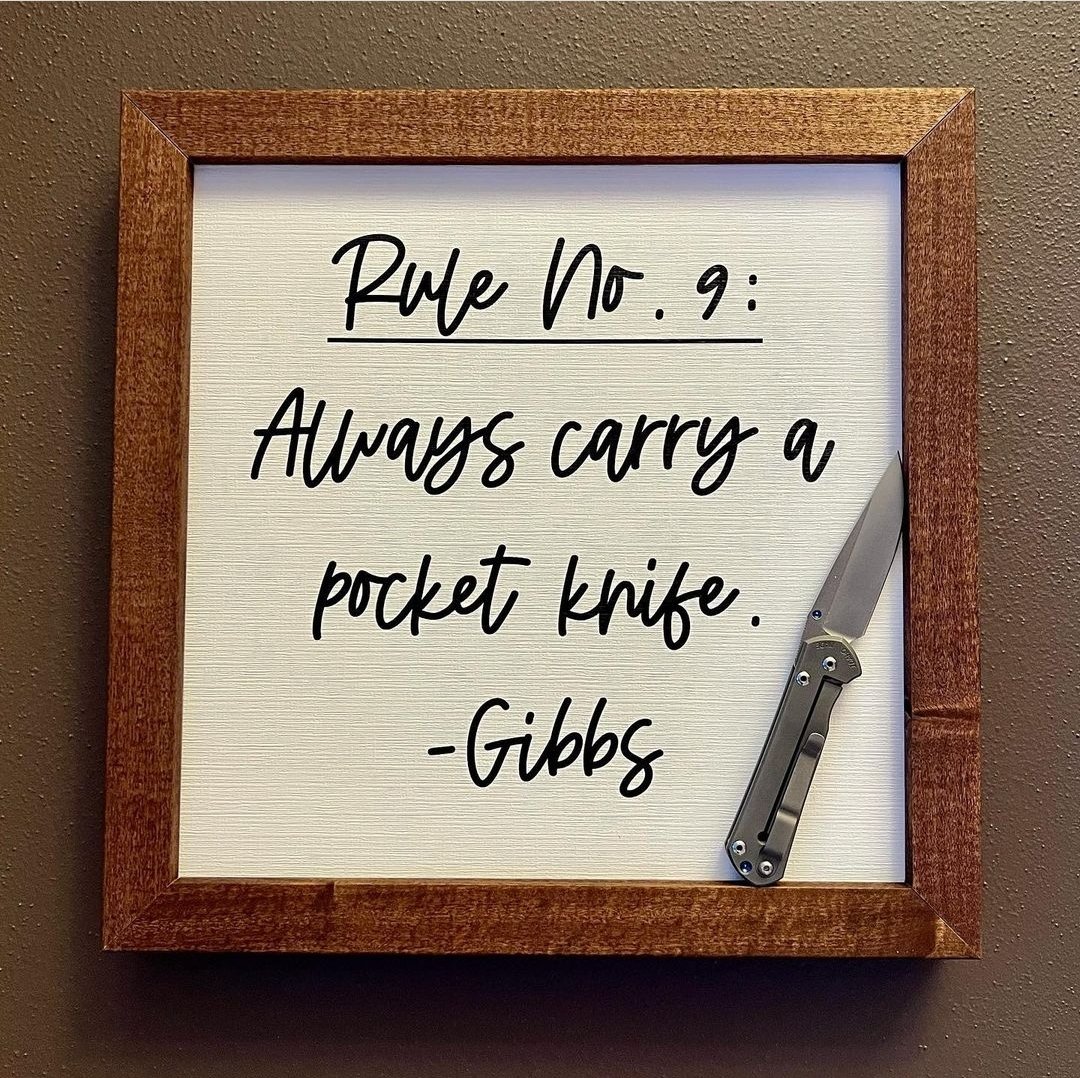 Rule No. 9:
Always carry a
pocket knife.
-Gibbs